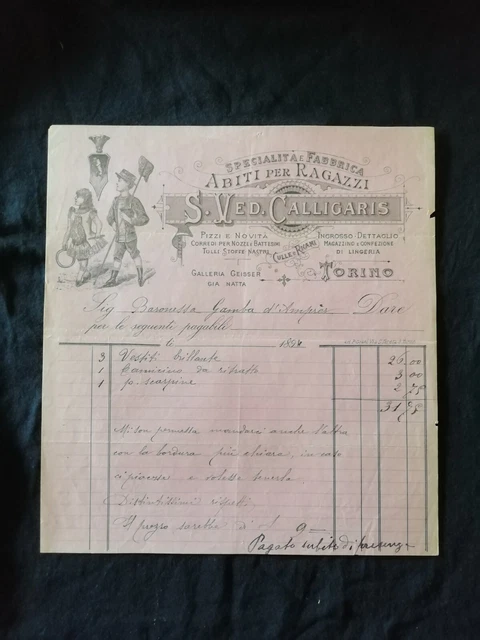 SPECIALITÀ E FABBRICA
ABITI PER RAGAZZI
S. VED. CALLIGARIS
PIZZI E NOVITÀ
CORREDI PER NOZZE E BATTESIMI
TULLI STOFFE NASTRI
COLLI E RICAMI
INGROSSO-DETTAGLIO
MAGAZZINO & CONFEZIONE
DI LINGERIA
GALLERIA GEISSER
GIÀ NATTA
TORINO
Sig Baronessa Gamba Dare
per le seguenti pagabile
li 1894
3 Vestiti brillante 26,00
1 Camicino da 3,00
1 p. scarpine 2,75
31,75
Mi son permessa mandarci anche l'altra
con la bordura più chiara, in caso
ci piacesse e volesse tenerla.
Distintissimi rispetti
Il prezzo sarebbe di 9 —
Pagato subito di